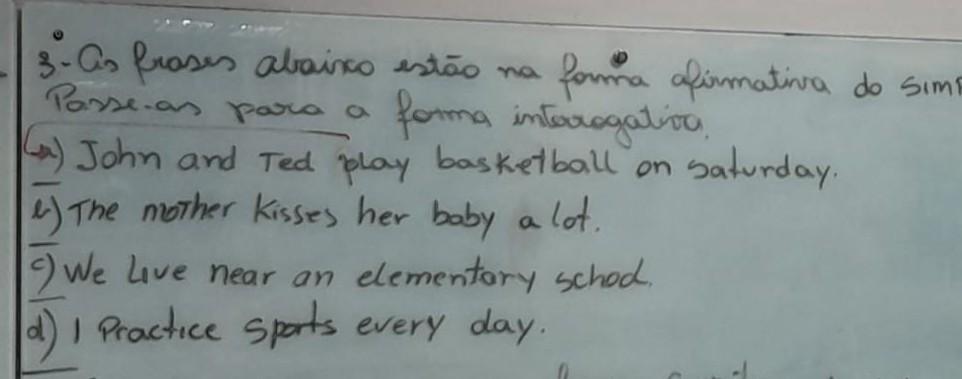 3- As frases abaixo estão na forma afirmativa do SIMP
Passe-as para a forma interrogativa.
a) John and Ted play basketball on saturday.
b) The mother kisses her baby a lot.
c) We live near an elementary school.
d) I Practice sports every day.